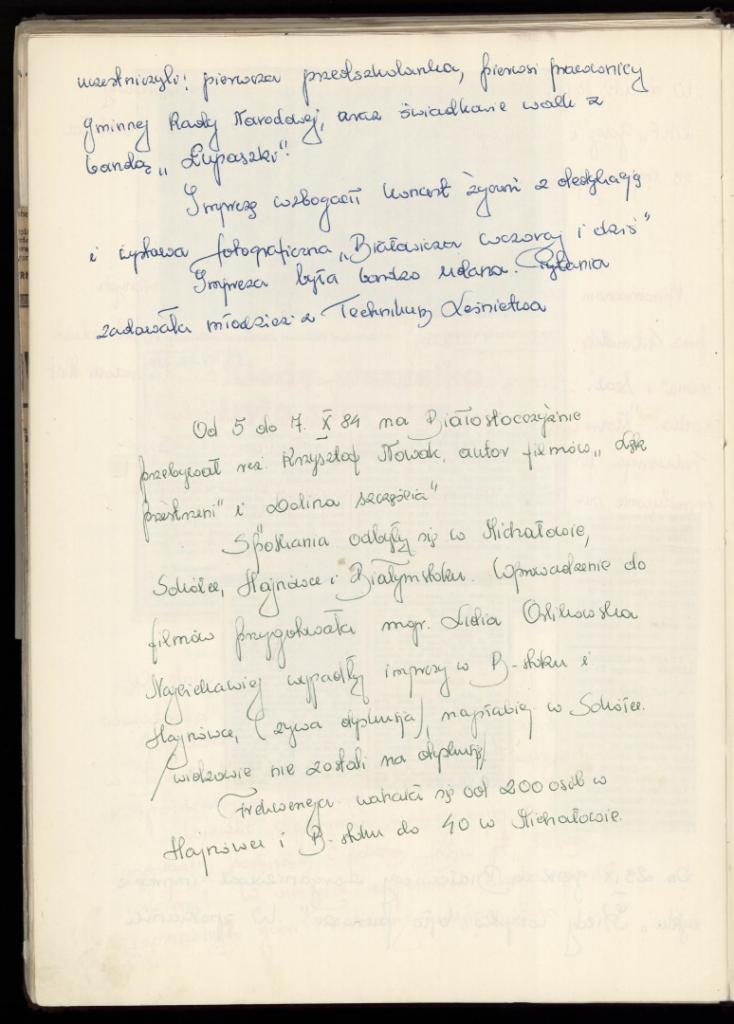 uczestniczyli: pierwsza przedszkolanka, pierwsi pracownicy
Gminnej Rady Narodowej, oraz świadkowie walk z
bandą „Łupaszki".
Imprezę wzbogacił koncert życzeń z dedykacją
i wystawa fotograficzna „Białowieża wczoraj i dziś"
Impreza była bardzo udana. Pytania
zadawała młodzież z Technikum Leśnictwa
Od 5 do 7. X 84 na Białostocczyźnie
przebywał reż. Krzysztof Nowak, autor filmów „Lęk
przestrzeni" i „Dolina szczęścia"
Spotkania odbyły się w Michałowie,
Sokółce, Hajnówce i Białymstoku. Wprowadzenie do
filmów przygotowała mgr. Lidia Orlikowska
Najciekawiej wypadły imprezy w B-stoku i
Hajnówce, (żywa dyskusja), najsłabiej w Sokółce.
/widzowie nie zostali na dyskusji/
Frekwencja wahała się od 200 osób w
Hajnówce i B-stoku do 40 w Michałowie.